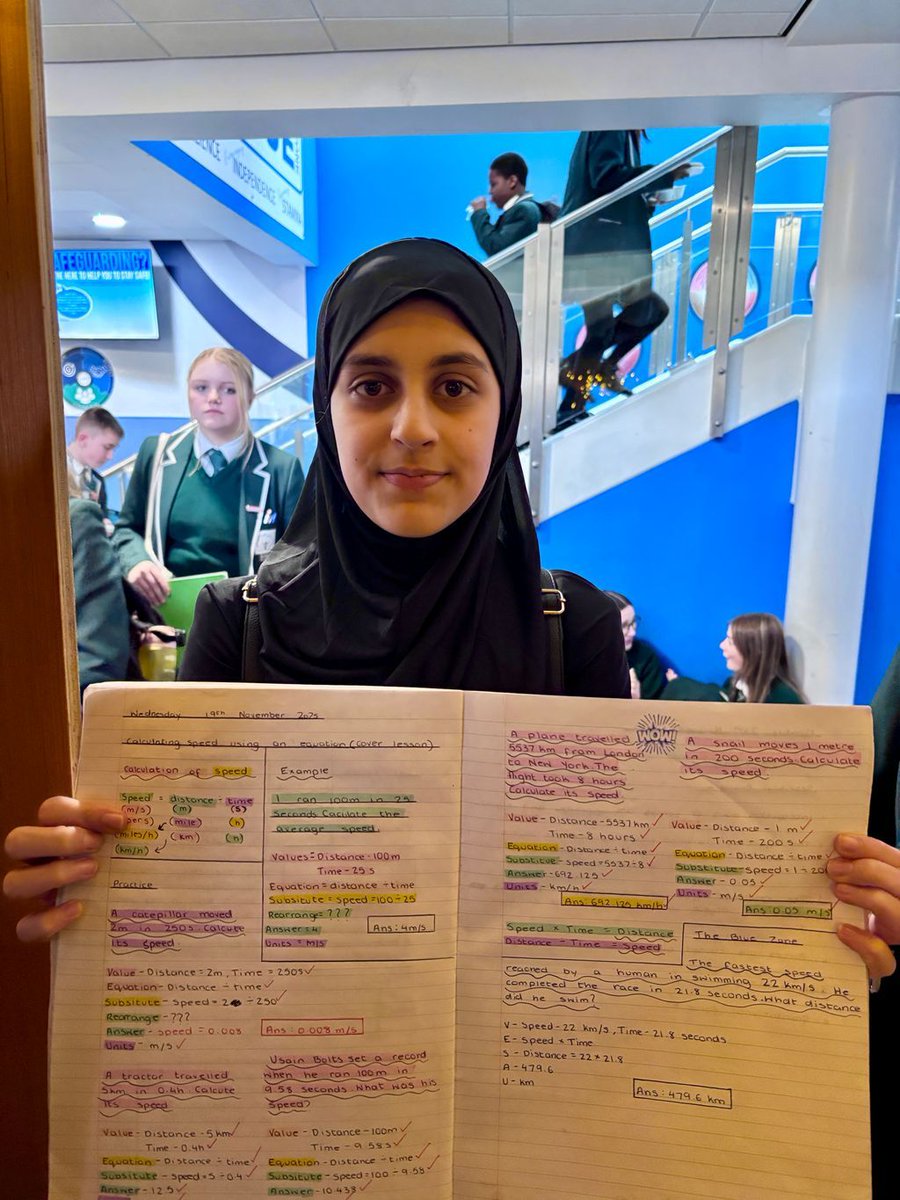 INDEPENDENCE
STAMINA
AFEGUARDING?
HERE TO HELP YOU TO STAY SAFE!
Wednesday 19th November 2025
Calculating speed using an equation (cover lesson)
Calculation of speed
Speed = distance ÷ time
(m/s) (m) (s)
(miles/h) (mile) (h)
(km/h) (km) (h)
Practice
A catepillar moved
2m in 250s. Calcute
its speed.
Value - Distance = 2m, Time = 250s
Equation - Distance ÷ time
Subsitute - Speed = 2 ÷ 250
Rearrange - ???
Answer - speed = 0.008
Ans: 0.008 m/s
Units - m/s
A tractor travelled
5km in 0.4h. Calcute
its speed
Value - Distance - 5 km
Time - 0.4h
Equation - Distance ÷ time
Substitute - Speed = 5 ÷ 0.4
Answer - 12.5
Example
I ran 100m in 25
Seconds. Caclulate the
average speed.
Values = Distance - 100m
Time - 25 s
Equation = distance ÷ time
Subsitute = Speed = 100 ÷ 25
Rearrange = ???
Answer = 4
Ans: 4m/s
Units = M/S
Usain Bolts set a record
when he ran 100m in
9.58 seconds. What was his
speed?
Value - Distance - 100m
Time - 9.58s
Equation - Distance ÷ time
Substitute - Speed = 100 ÷ 9.58
Answer - 10.438
A plane travelled
5537 km from London
to New York. The
flight took 8 hours
Calculate its speed
WOW!
Value - Distance - 5537 km
Time - 8 hours
Equation - Distance ÷ time
Substitute - Speed = 5537 ÷ 8
Answer - 692.125
Units - km/h
Ans: 692.125 km/h
A snail moves 1 metre
in 200 seconds. Calculate
its speed.
Value - Distance - 1 m
Time - 200 s
Equation - Distance ÷ time
Substitute - Speed = 1 ÷ 200
Answer - 0.05
Units - m/s
Ans: 0.05 m/s
Speed × Time = Distance
Distance ÷ Time = speed
The Blue Zone
The fastest speed
reached by a human in swimming 22 km/s. He
completed the race in 21.8 seconds. What distance
did he swim?
V - Speed - 22 km/s, Time - 21.8 seconds
E - Speed × Time
S - Distance = 22 × 21.8
A - 479.6
U - km
Ans: 479.6 km